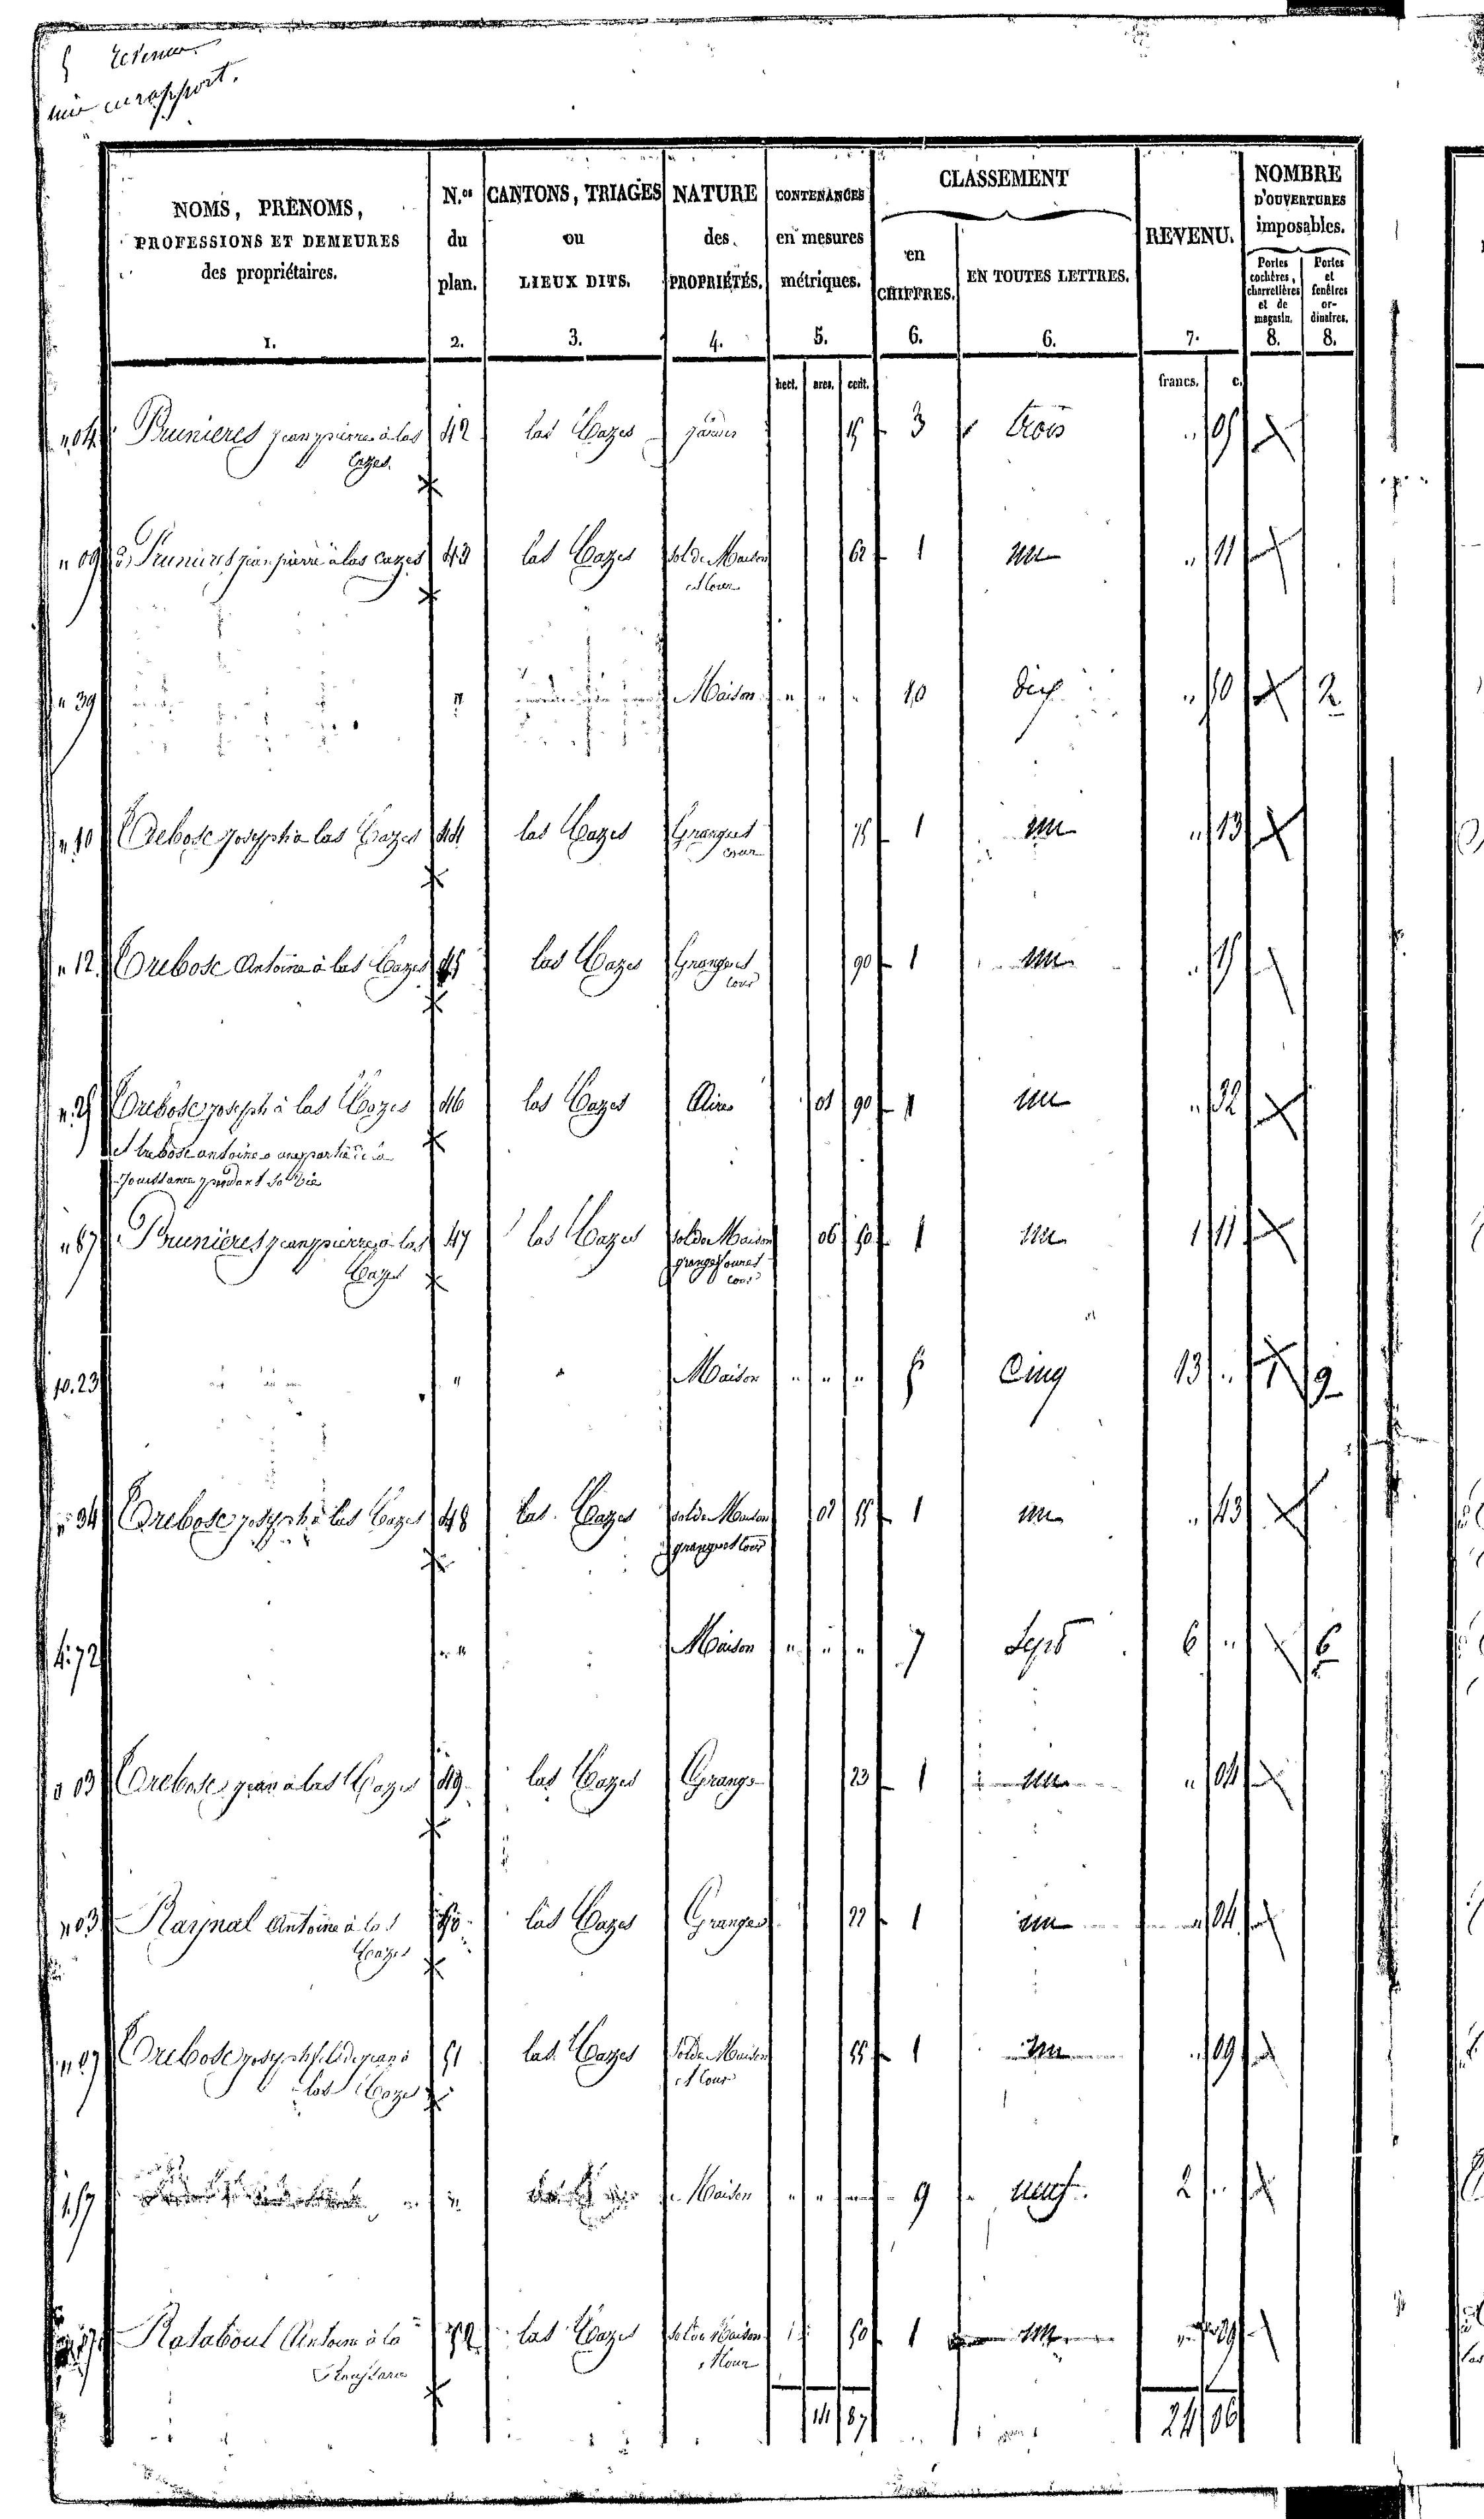 en rapport.
NOMS, PRÉNOMS,
PROFESSIONS ET DEMEURES
des propriétaires.
1.
N.os
du
plan.
2.
CANTONS, TRIAGES
ou
LIEUX DITS.
3.
NATURE
des
PROPRIÉTÉS.
4.
CONTENANCES
en mesures
métriques.
5.
CLASSEMENT
en
CHIFFRES.
6.
EN TOUTES LETTRES.
6.
REVENU.
7.
NOMBRE
D'OUVERTURES
imposables.
Portes
cochères,
charretières
et de
magasin.
8.
Portes
et
fenêtres
or-
dinaires.
8.
hect. ares. cent. francs. c.
" 04 Prunieres jean pierre à las 42 las Cazes jardin 15 3 trois " 05
Cazes
" 09 Prunieres jean pierre à las cazes 43 las Cazes sol de Maison 62 1 un " 11
et Cour
" 39 " Maison " " " 10 dix " 50 2
" 10 Trebosc joseph à las Cazes 44 las Cazes Grange et 75 1 un " 13
cour
" 12 Trebosc Antoine à las Cazes 45 las Cazes Grange et 90 1 un " 15
Cour
" 25 Trebosc joseph à las Cazes 46 las Cazes Aire 01 90 1 un " 32
et trebosc antoine a une partie de la
jouissance pendant sa vie
" 87 Prunieres jean pierre à las 47 las Cazes sol de Maison 06 50 1 un 1 11
Cazes grange four et
cour
10.23 " Maison " " " 5 Cinq 13 " 9
" 34 Trebosc joseph à las Cazes 48 las Cazes sol de Maison 02 55 1 un " 43
grange et Cour
4.72 " Maison " " " 7 Sept 6 " 6
" 03 Trebosc jean à las Cazes 49 las Cazes Grange 23 1 un " 04
" 03 Raynal Antoine à las 50 las Cazes Grange 22 1 un " 04
Cazes
" 07 Trebosc joseph fils de jean à 51 las Cazes Sol de Maison 55 1 un " 09
las Cazes et Cour
1.57 " Maison " " 9 neuf 2 "
Rataboul Antoine à la 52 las Cazes sol de Maison 50 1 un
et Cour
14 87 24 06